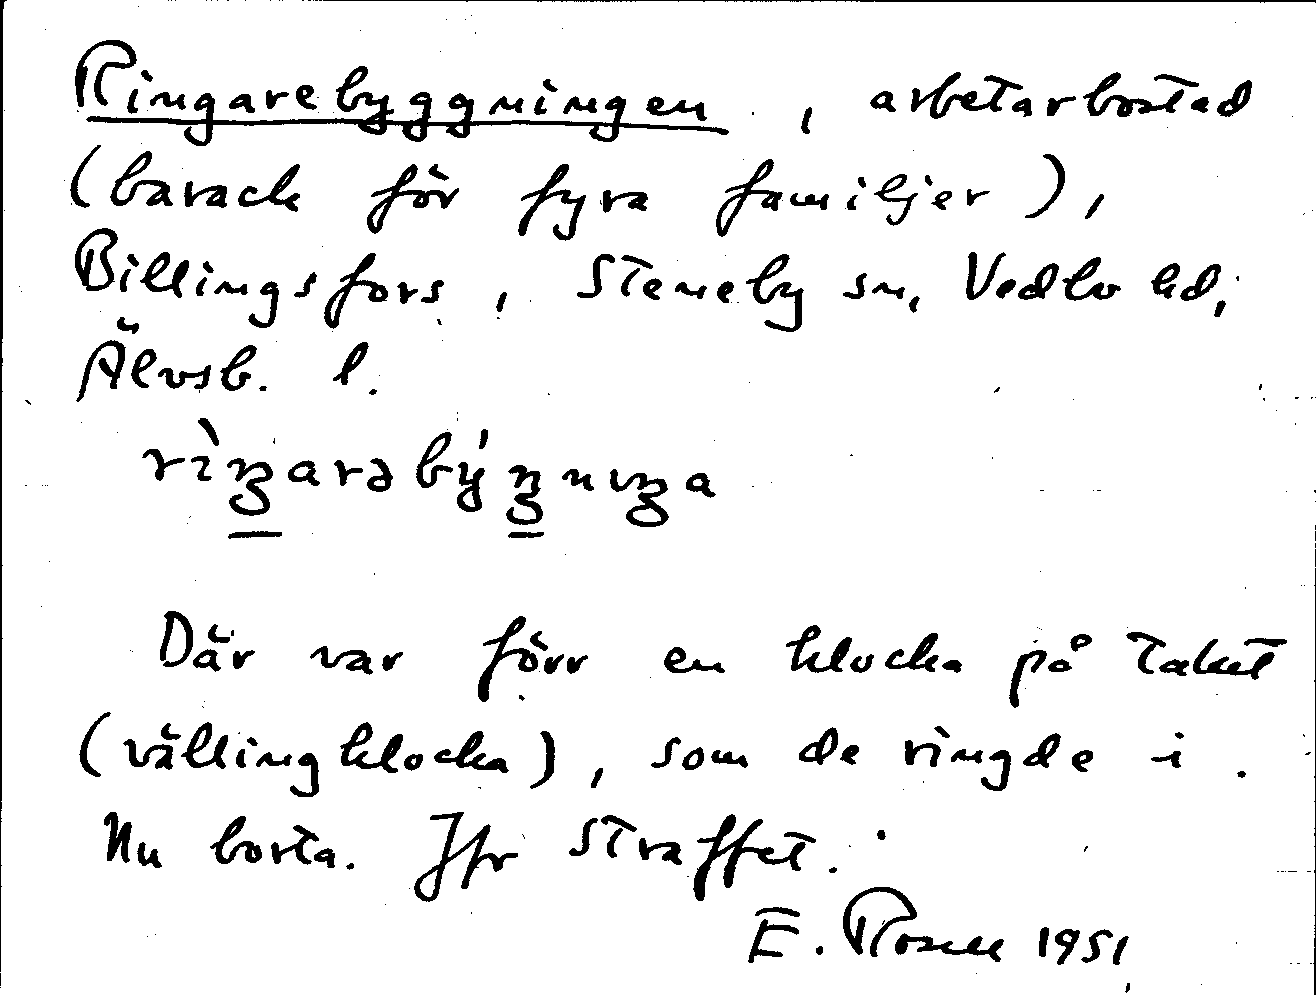 Ringarebyggningen, arbetarbostad
(barack för fyra familjer),
Billingsfors, Steneby sn, Vedbo hd,
Älvsb. l.
Där var förr en klocka på taket
(vällingklocka), som de ringde i.
Nu borta. Jfr Straffet.
E. Rosell 1951